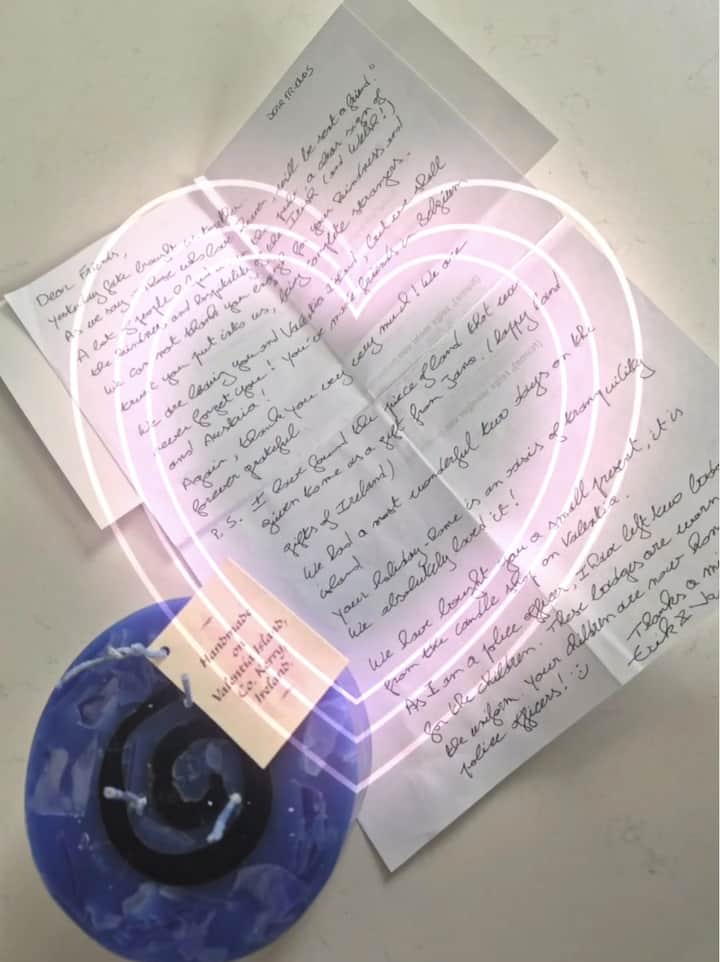 DEAR FRIENDS
Dear Friends,
Yesterday fate brought us together.
As we say "Those who look further, will be sent a friend."
A lot of people o
the kindness, and hospitality of Ireland (and Welsh!)
We can not thank you enough for your kindness and
trust you put into us, being complete strangers.
We are leaving you and Valentia Island, but we shall
never forget you! You've more friends in Belgium
and Austria!
Again, thank you very very much! We are
forever grateful.
P.S. I have found the piece of land that were
given to me as a gift from Jano. (happy) and
gifts of Ireland)
We had a most wonderful two days on the
island
Your holiday home is an oasis of tranquility
We absolutely loved it!
We have bought you a small present, it is
from the candle shop on Valentia.
As I am a police officer, I have left two badg
for the children. These badges are worn
the uniform. Your children are now hon
police officers! :-)
Thanks a mi
Erik & Ja
- Handmade
on
Valentia Island,
Co. Kerry,
Ireland. -